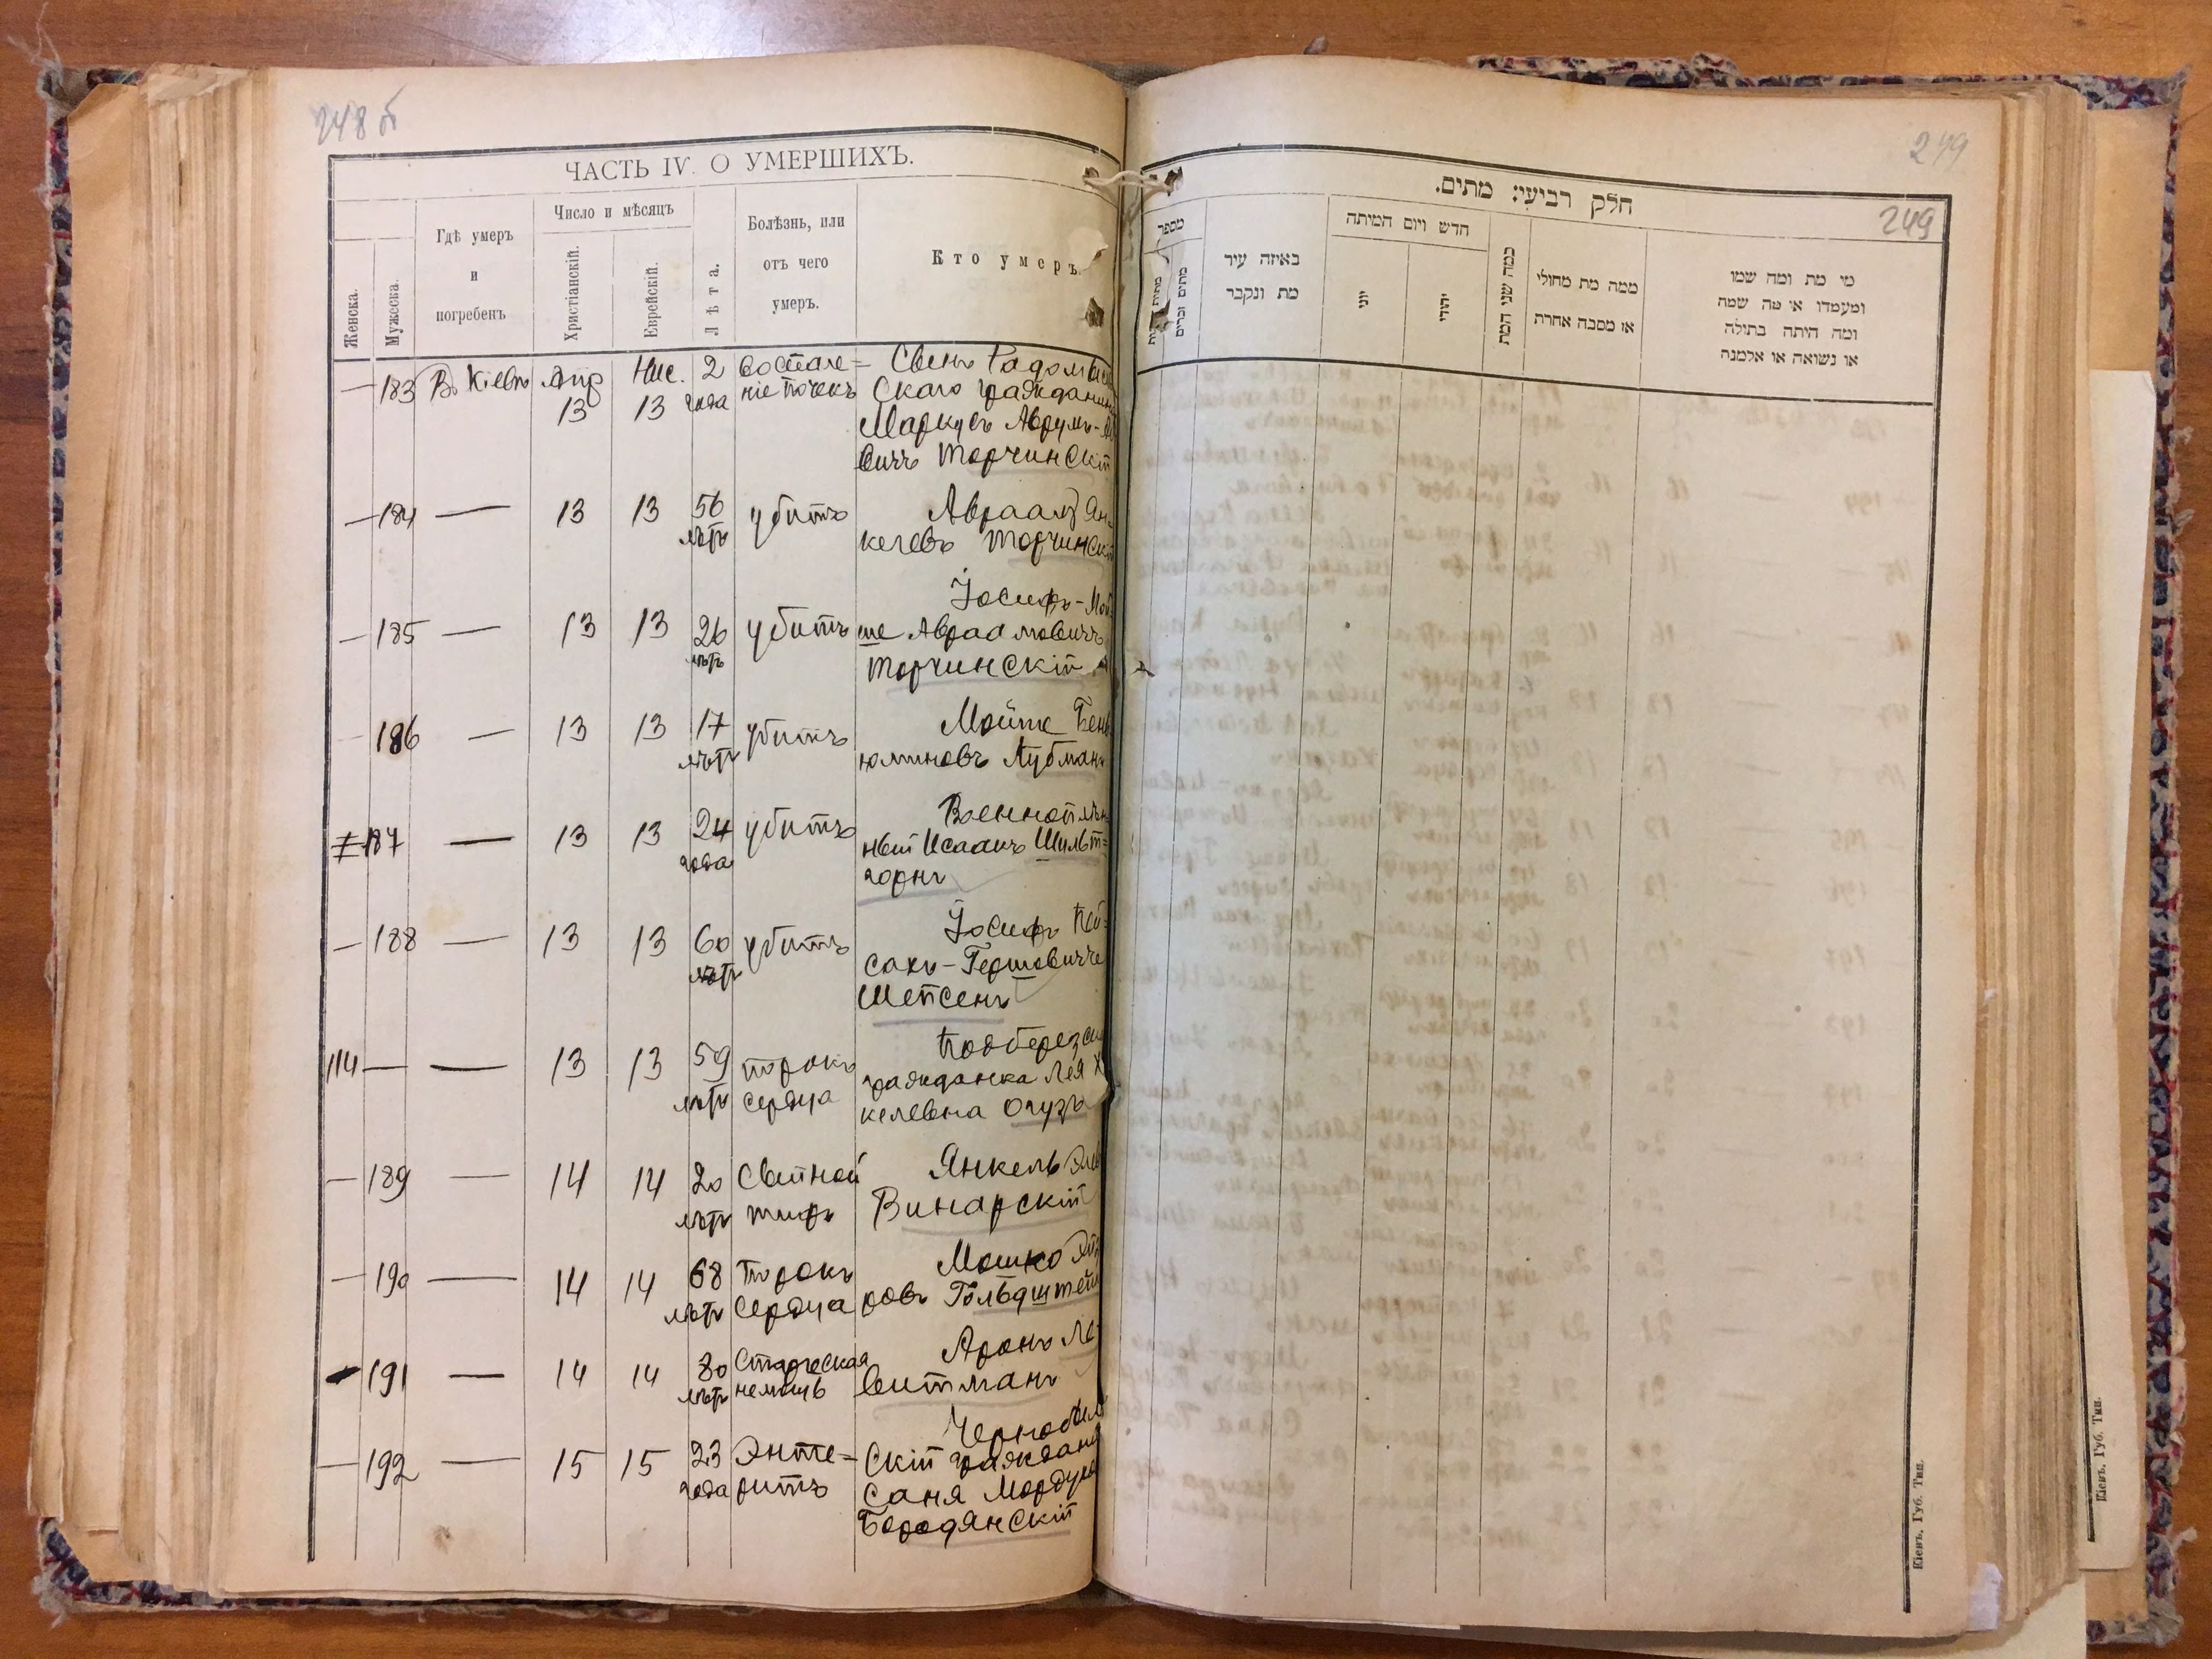 248 б
ЧАСТЬ IV. О УМЕРШИХЪ.
Женска.
Мужеска.
Гдѣ умеръ
и
погребенъ
Число и мѣсяцъ
Христіанскій.
Еврейскій.
Лѣта.
Болѣзнь, или
отъ чего
умеръ.
Кто умеръ.
— 183 В. Кіевѣ Апр 13 Нис. 13 2 года воспале-
ніе почекъ
Сынъ Радомысль
скаго гражданина
Маркусъ Аврумъ-
вичъ Торчинскій
— 184 — 13 13 56 лѣтъ убитъ
Авраамъ Ян-
келевъ Торчинскій
— 185 — 13 13 26 лѣтъ убитъ
Іосифъ-Мой-
ше Авраамовичъ
Торчинскій
186 — 13 13 17 лѣтъ убитъ
Мойше Бень
юминовъ Лубманъ
187 — 13 13 24 года убитъ
Военноплѣн
ный Исаакъ Шильт-
горнъ
— 188 — 13 13 60 лѣтъ убитъ
Іосифъ Пей-
сахъ-Гершовичъ
Шепсенъ
114 — — 13 13 59 лѣтъ порокъ
сердца
гражданка Лея
келевна Огузъ
— 189 — 14 14 20 лѣтъ Сыпной
тифъ
Янкель
Винарскій
— 190 — 14 14 68 лѣтъ порокъ
сердца
Мошко
ровъ Гольдштейнъ
— 191 — 14 14 80 лѣтъ Старческая
немощь
Аронъ Ле-
витманъ
— 192 — 15 15 23 года Энте-
ритъ
Чернобыль
скій гражданинъ
Саня Мордух
Бородянскій
249
חלק רביעי: מתים.
249
מספר
מתים זכרים
באיזה עיר
מת ונקבר
חדש ויום המיתה
יוני
יהודי
כמה שני המת
ממה מת מחולי
או מסבה אחרת
מי מת ומה שמו
ומעמדו או מה שמה
ומה היתה בתולה
או נשואה או אלמנה
Кіевъ, Губ. Тип.
Кіевъ, Губ. Тип.